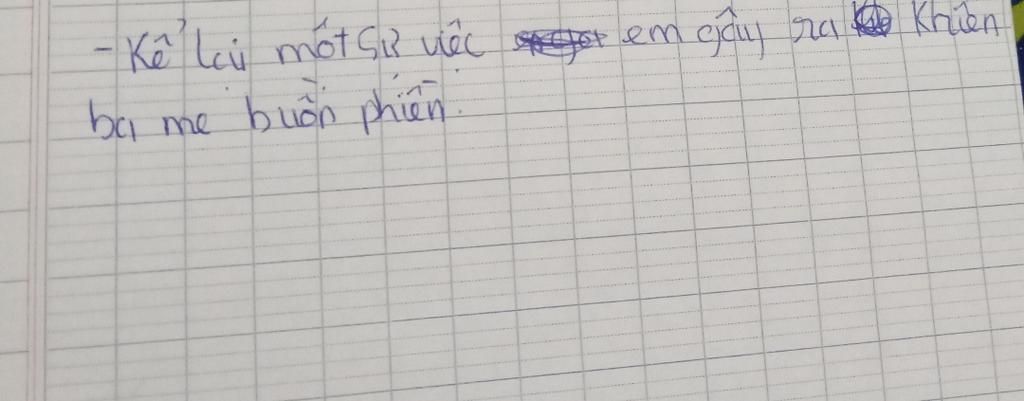 - Kể lại một sự việc em gây ra khiến
ba mẹ buồn phiền.